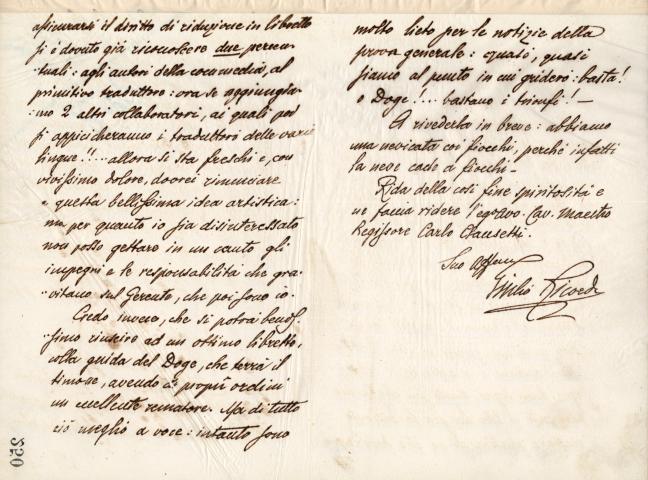 assicurarsi il diritto di riduzione in libretto
si è dovuto già riconoscere due percen-
tuali: agli autori della commedia, al
primitivo traduttore: ora se aggiungia-
mo 2 altri collaboratori, ai quali poi
si appiccicheranno i traduttori delle varie
lingue!!... allora si sta freschi e, con
vivissimo dolore, dovrei rinunciare
a questa bellissima idea artistica:
ma per quanto io sia disinteressato
non posso gettare in un canto gli
impegni e le responsabilità che gra-
vitano sul Gerente, che poi sono io.
Credo invece, che si potrà benis-
simo riuscire ad un ottimo libretto,
colla guida del Doge, che terrà il
timone, avendo a' proprii ordini
un eccellente rematore. Ma di tutto
ciò meglio a voce: intanto sono
molto lieto per le notizie della
prova generale: quasi, quasi
siamo al punto in cui griderò: basta!
o Doge!... bastano i trionfi! —
A rivederla in breve: abbiamo
una nevicata coi fiocchi, perché infatti
la neve cade a fiocchi —
Rida della così fine spiritosità e
ne faccia ridere l'egregio Cav. Maestro
Regissore Carlo Clausetti.
Suo
Giulio Ricordi
250